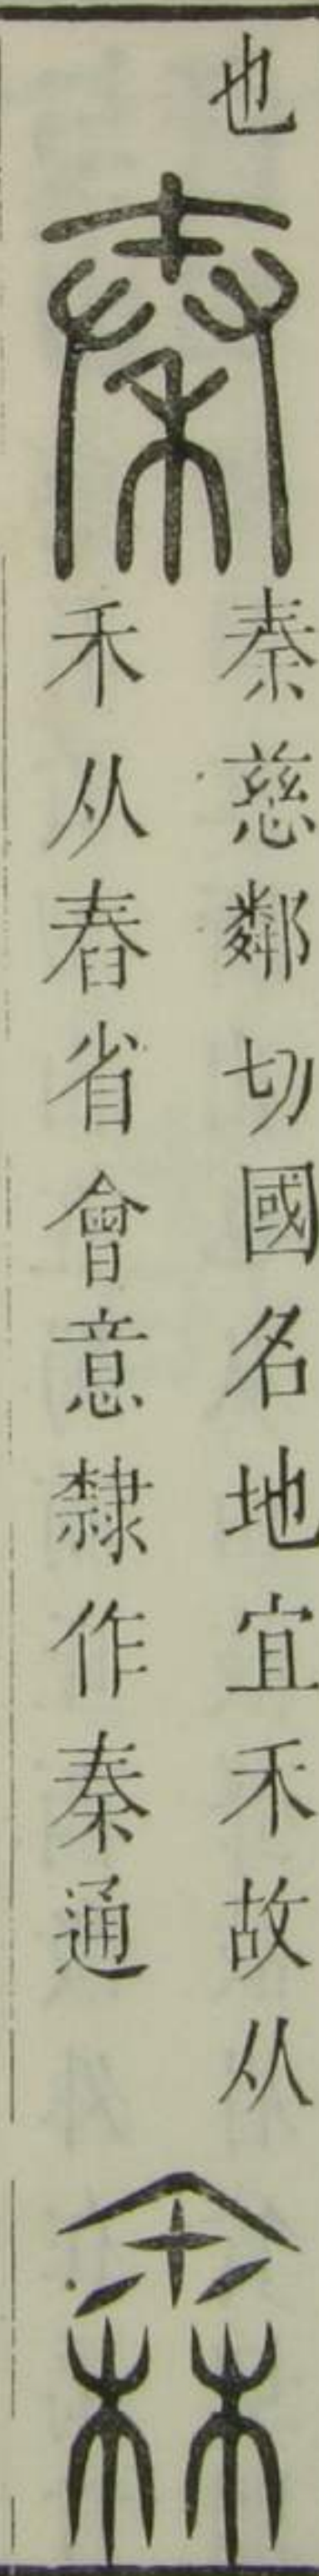 也
秦
秦慈鄰切國名地宜禾故从
禾从舂省會意隸作秦通